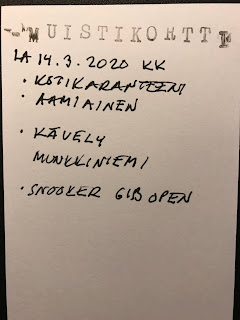 MUISTIKORTTI
LA 14.3.2020 KK
• KOTIKARANTEENI
• AAMIAINEN
• KÄVELY
MUNKKINIEMI
• SNOOKER GIB OPEN